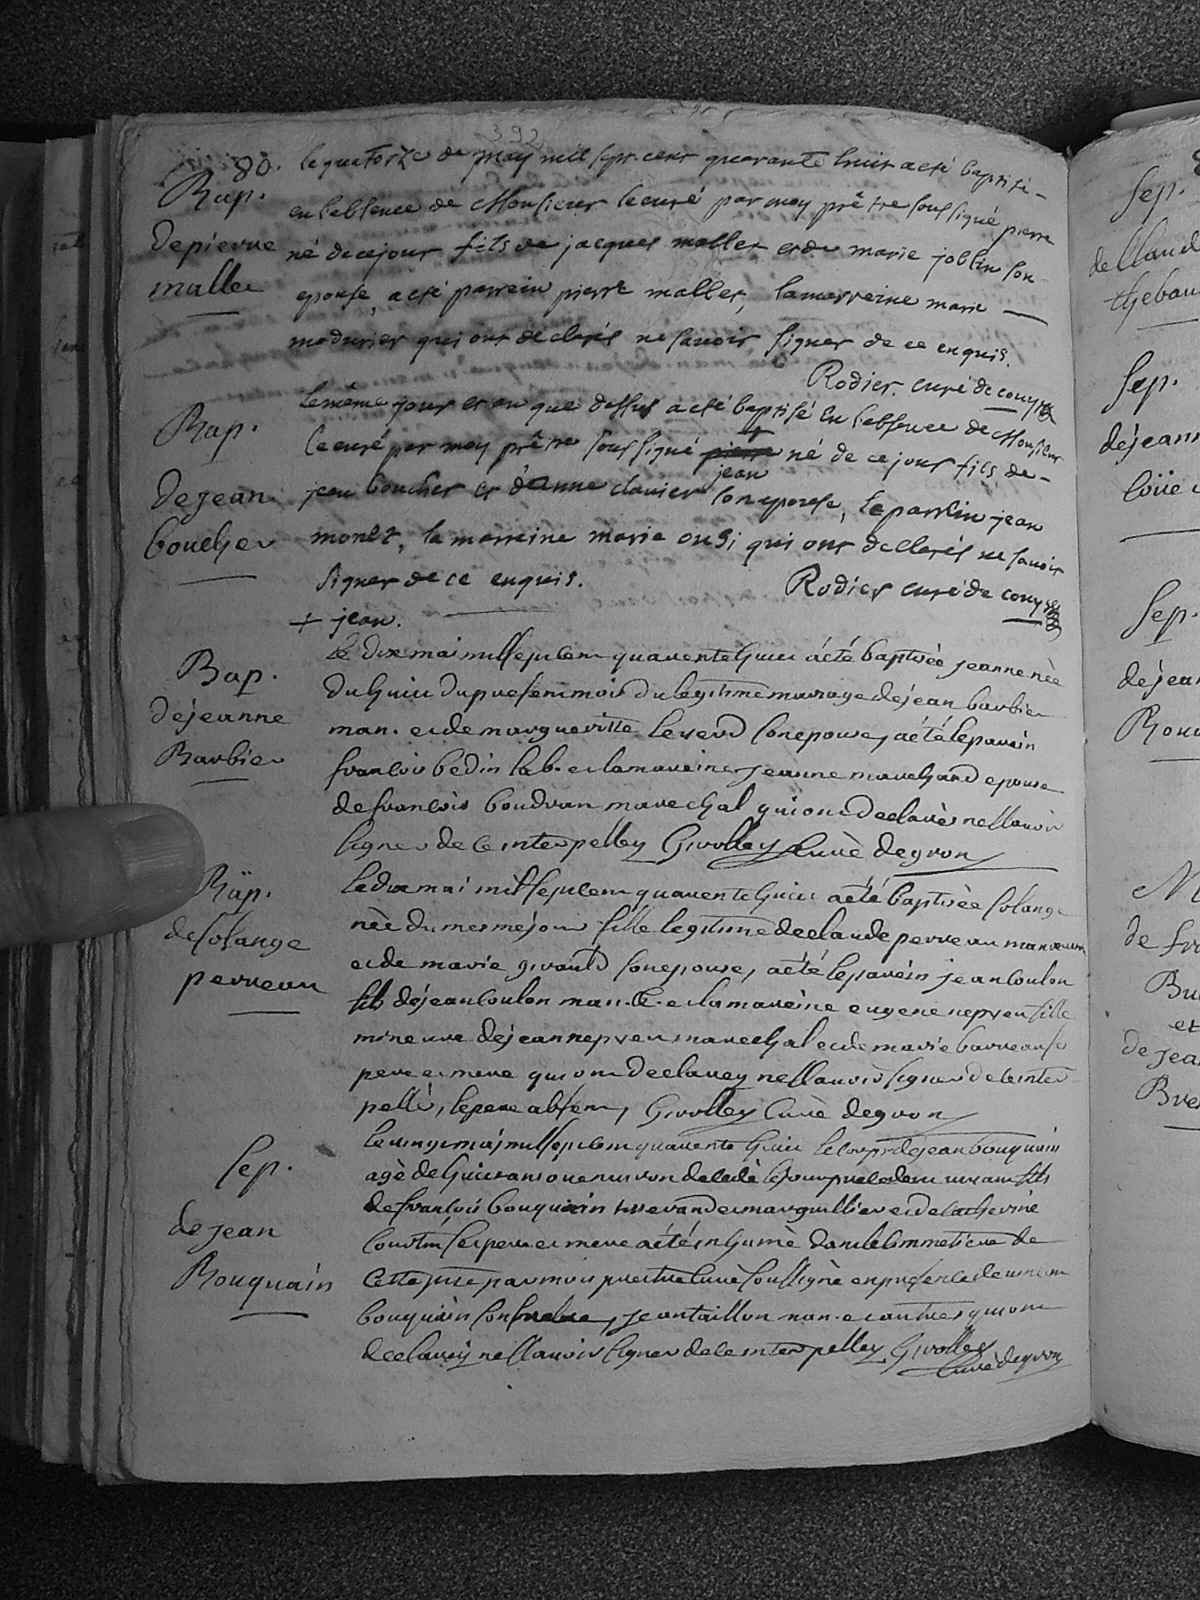 392
80.
Bap.
de pierre
mallet
le quatorze de may mil sept cent quarante huit a esté baptisé
en l'absence de Monsieur le curé par moy prêtre soussigné pierre
né de ce jour fils de jacques mallet et de marie joblin son
epouse, a esté parrein pierre mallet, la marreine marie
madurier qui ont declarés ne savoir signer de ce enquis.
Rodier curé de couy
Bap.
de Jean
boucher
le même jour et an que dessus a esté baptisé en l'absence de Monsieur
le curé par moy prêtre soussigné pierre + né de ce jour fils de
jean
jean boucher et d'anne clavier son epouse, le parrein jean
monet, la marreine marie qui ont declarés ne savoir
signer de ce enquis. Rodier curé de couy
+ jean.
Bap.
de jeanne
Barbier
le dix mai mil sept cent quarente huit a été baptisée jeanne née
du huit du present mois du legitime mariage de jean barbier
man. et de margueritte son epouse, a été le parein
francois bedin lab. et la mareine jeanne marchand epouse
de francois boudran marechal qui ont declarés ne scavoir
signer de ce interpelley Girolley curé de gron
Bap.
de solange
perreau
le dix mai mil sept cent quarente huit a été baptisée solange
née du mesme jour fille legitime de claude perreau manœuvre
et de marie girauld son epouse, a été le parein jean coulon
fils de jean coulon man. et la mareine eugene nepveu fille
mineure de jean nepveu marechal et de marie barreau ses
pere et mere qui ont declarey ne scavoir signer de ce inter
pellé, le pere absent, Girolley curé de gron
Sep.
de jean
Bouquain
le vingt mai mil sept cent quarente huit le corps de jean bouquain
agé de huit ans ou environ decedé le jour precedent vivant fils
de francois bouquain tisserand et marguillier et de catherine
ses pere et mere a été inhumé dans le cimmetiere de
cette par moi prestre curé soussigné en presence de
bouquain son, jean taillon man. et autres qui ont
declarey ne scavoir signer de ce interpelley Girolley
curé de gron
Sep.
Sep.
Sep.